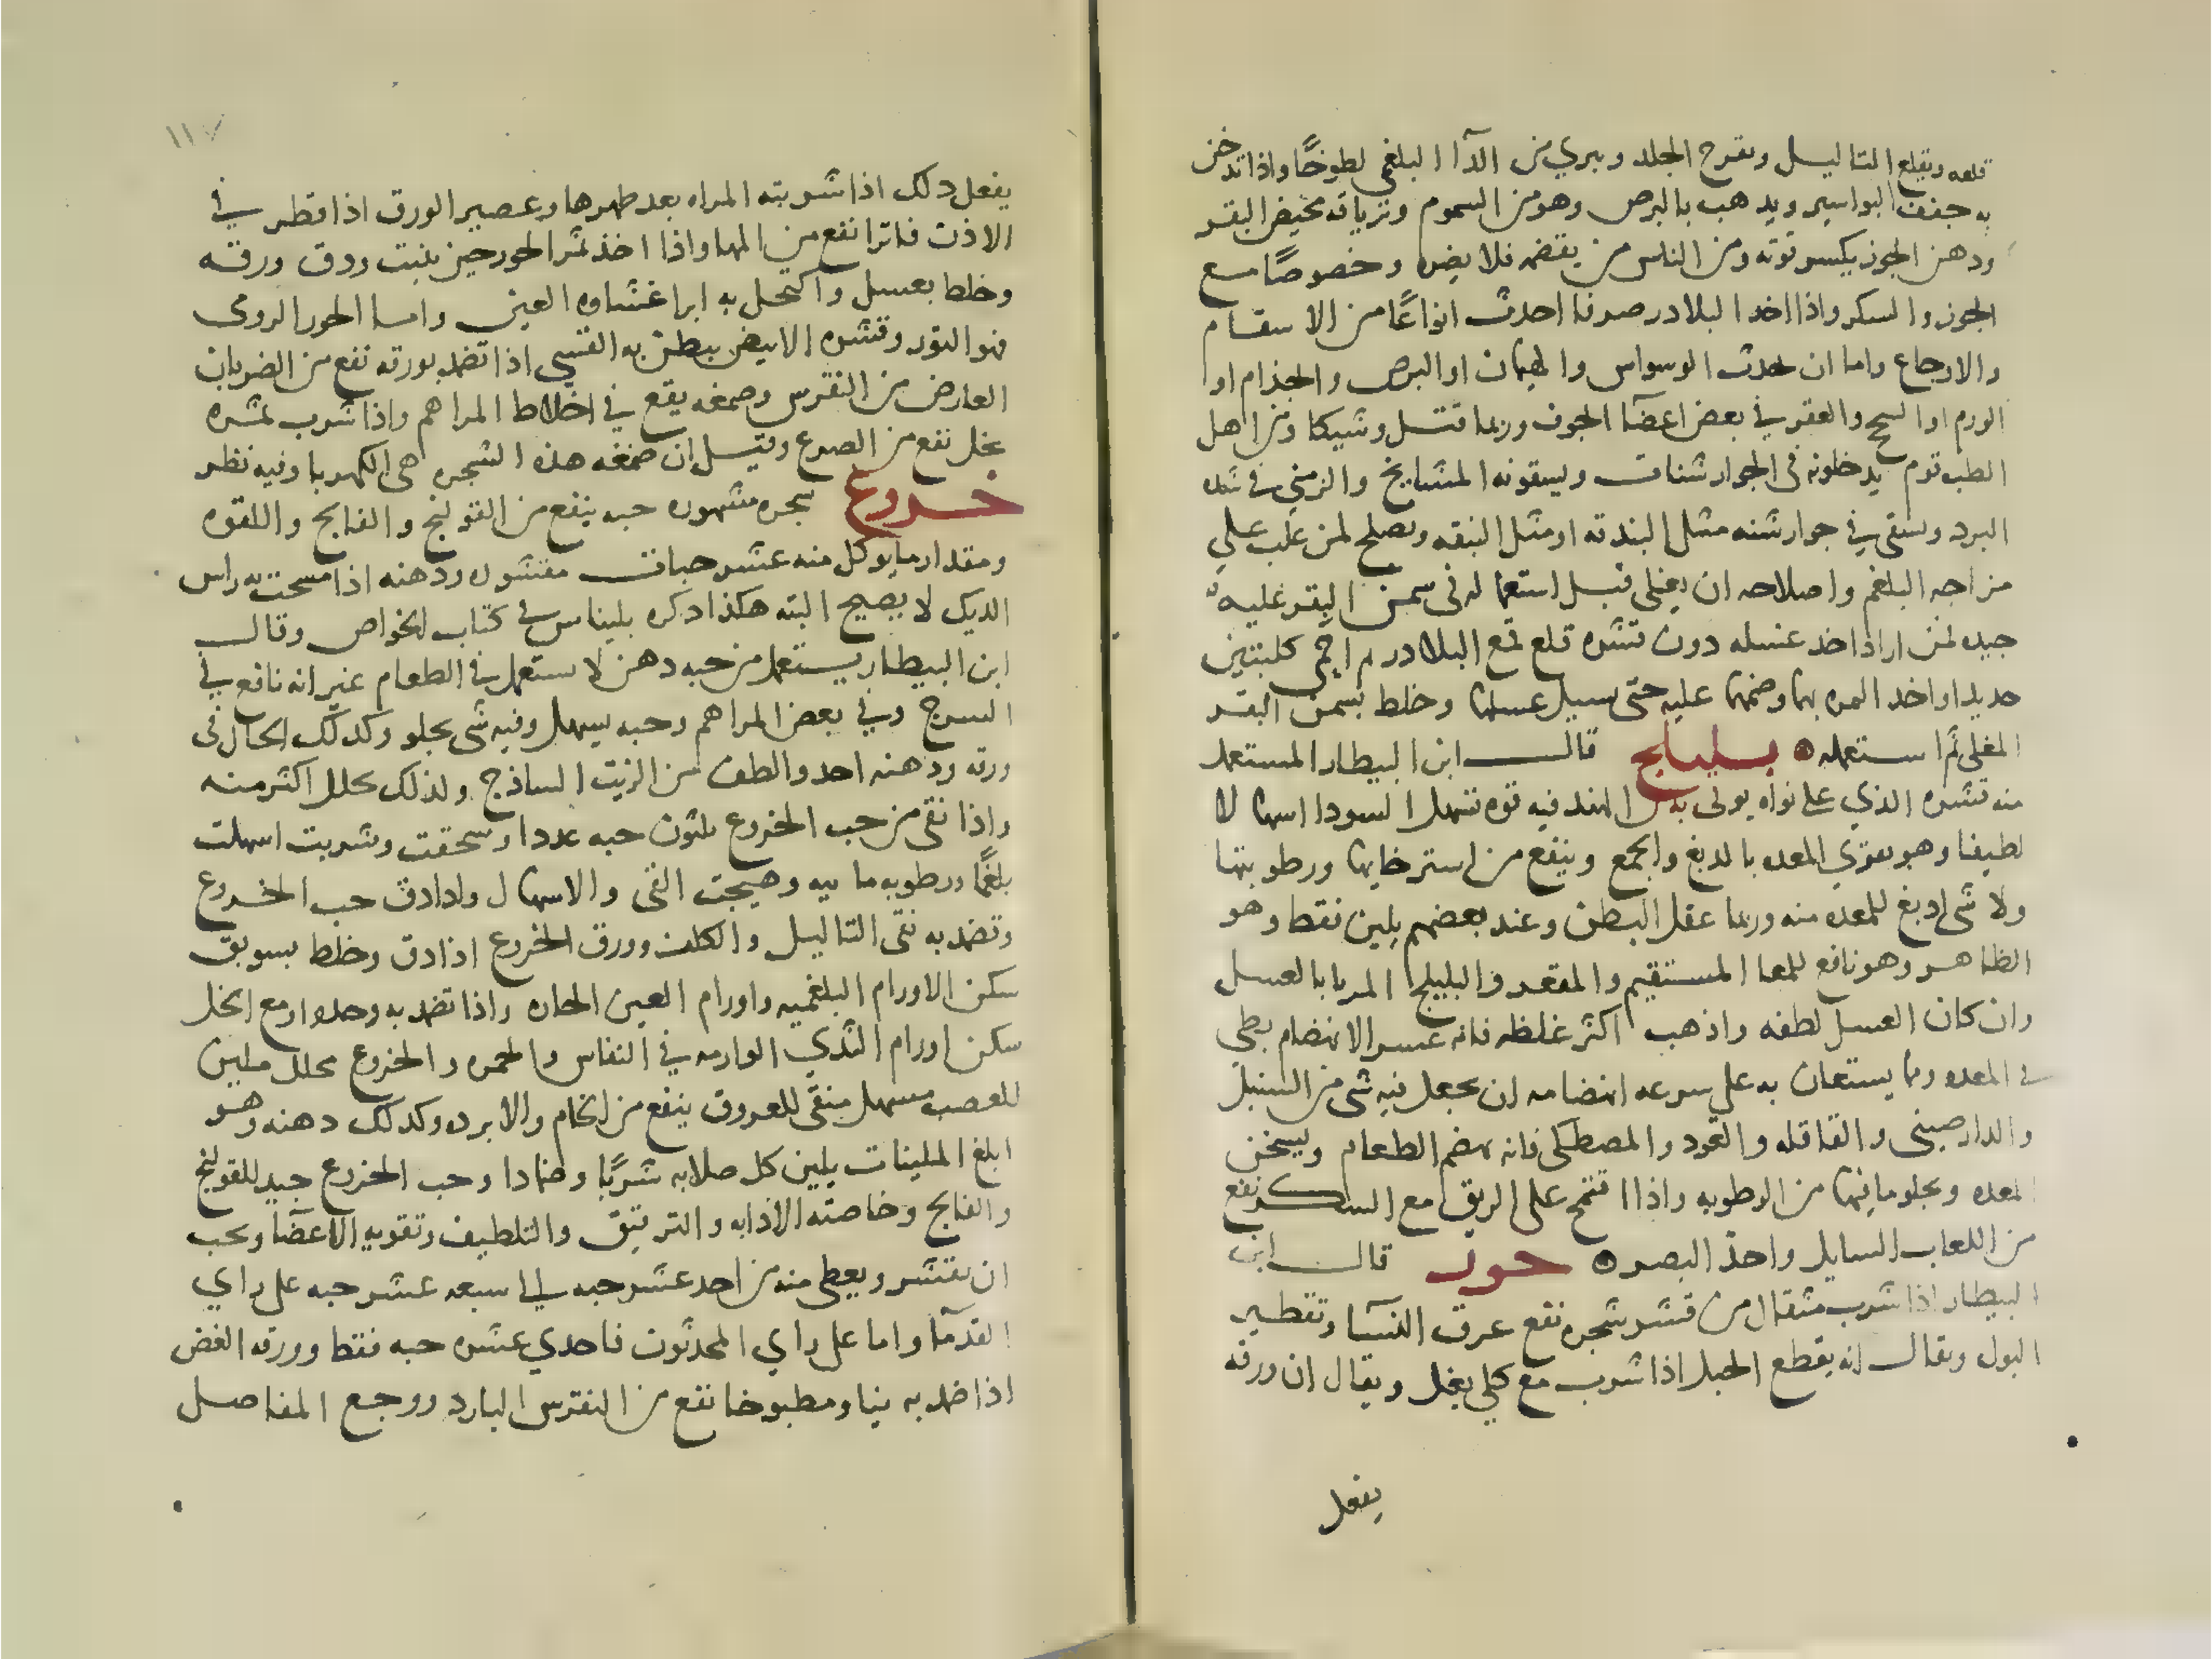 قلعه ويقلع التاليل ويقرح الجلد ويبري من الدآ البلغمي لطوخًا واذا تدخن
به جفف البواسير ويذهب بالبرص وهو من السموم وترياقه مخيض البقر
ودهن الجوز يكسر قوته ومن الناس من يقضمه فلا يضره وخصوصًا مع
الجوز والسكر واذا اخد البلادر صرفا احدث انواعًا من الاسقام
والاوجاع واما ان يحدث الوسواس والهيمان او البرص والجذام او
الورم او السحج والعقر في بعض اعضآ الجوف وربما قتل وشيكا ومن اهل
الطب قوم يدخلونه في الجوارشنات ويسقونه المشايخ والزمني في شده
البرد ويسقى في جوارشنه مثل البندقه او مثل النبقه ويصلح لمن غلب علي
مزاجه البلغم واصلاحه ان يغلى قبل استعماله في سمن البقر غليه
جيده لمن اراد اخد عسله دون قشره قلع قمع البلادر ثم احمى كلبتين
حديد او اخد الثمره بها وضمها عليه حتى يسيل عسلها وخلط بسمن البقر
المغلى ثم استعمله بليلج قال ابن البيطار المستعمل
منه قشره الذي على نواه يوتى به من الهند فيه قوه تسهل السودا اسهالا
لطيفا وهو يقوي المعده بالدبغ والجمع وينفع من استرخايها ورطوبتها
ولا شي ادبغ للمعده منه وربما عقل البطن وعند بعضهم يلين فقط وهو
الظاهر وهو نافع للمعا المستقيم والمقعد والبليلج المربا بالعسل
وان كان العسل لطفه واذهب اكثر غلظه فانه عسر الانهضام بطي
في المعده ومما يستعان به على سرعه انهضامه ان يجعل فيه شي من السنبل
والدارصيني والقاقله والعود والمصطكى فانه يهضم الطعام ويسخن
المعده ويجلو ما فيها من الرطوبه واذا اقتمح على الريق مع السكر نفع
من اللعاب السايل واحد البصر حور قال ابن
البيطار اذا شرب مثقال من قشر شجره نفع عرق النسآ وتقطير
البول ويقال انه يقطع الحبل اذا شرب مع كلي بغل ويقال ان ورقه
يفعل
١١٧
يفعل دلك اذا شربته المراه بعد طهرها وعصير الورق اذا قطر في
الاذن فاترا نفع من المها واذا اخذ ثمر الحور حين ينبت ودق ورقه
وخلط بعسل واكتحل به ابرا غشاوه العين واما الحور الرومى
فهو التوز وقشره الابيض يبطن به القسي اذا تضمد بورقه نفع من الضربان
العارض من النقرس وصمغه يقع في اخلاط المراهم واذا شرب ثمره
بخل نفع من الصرع وقيل ان صمغه هذه الشجره هى الكهربا وفيه نظر
خروع شجره مشهوره حبه ينفع من القولنج والفالج واللقوه
ومقدار ما يوكل منه عشر حبات مقشوره ودهنه اذا مسحت به راس
الديك لا يصيح البته هكذا دكره بليناس في كتاب الخواص وقال
ابن البيطار يستعمل من حبه دهن لا يستعمل في الطعام غير انه نافع في
السرج وفي بعض المراهم وحبه يسهل وفيه شى يجلو وكدلك الحال في
ورقه ودهنه احد والطف من الزيت الساذج ولذلك يحلل اكثر منه
واذا نقى من حب الخروع ثلثون حبه عددا وسحقت وشربت اسهلت
بلغمًا ورطوبه ما ييه وهيجت القى والاسهال واذا دق حب الخروع
وتضمد به نقى التاليل والكلف وورق الخروع اذا دق وخلط بسويق
سكن الاورام البلغميه واورام العين الحاره واذا تضمد به وحده او مع الخل
سكن اورام الثدي الوارمه في النفاس والحمره والخروع محلل ملين
للعصب مسهل منقى للعروق ينفع من الخام والابرده وكدلك دهنه وهو
ابلغ الملينات يلين كل صلابه شربًا وضمادا وحب الخروع جيد للقولنج
والفالج وخاصته الاذابه والترقيق والتلطيف وتقويه الاعضآ ويجب
ان يقشر ويعطى منه من احد عشر حبه الى سبعه عشر حبه على راي
القدمآ واما على راي المحدثون فاحدي عشره حبه فقط وورقه الغض
اذا ضمد به نيا ومطبوخا نفع من النقرس البارد ووجع المفاصل